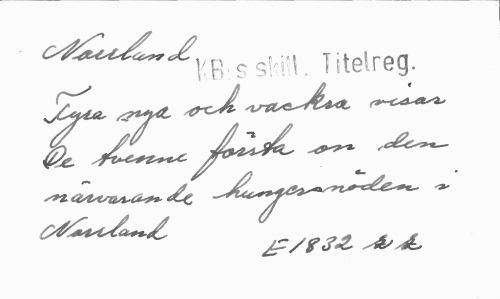 Norrland
KB:s skill. Titelreg.
Fyra nya och vackra visar
De tvenne första om den
närvarande hungersnöden i
Norrland
E 1832